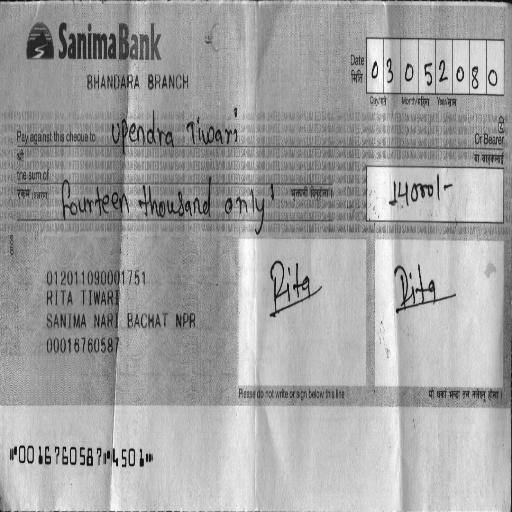 Sanima Bank
BHANDARA BRANCH
Date 03052080
मिति
Day/गते Month/महिना Year/साल
Pay against this cheque to Upendra Tiwari Or Bearer
श्री वा वाहकलाई
the sum of
रकम fourteen thousand only 14000/-
012011090001751
RITA TIWARI
SANIMA NARI BACHAT NPR
00016760587
Rita Rita
Please do not write or sign below this line
⑈0016760587⑈4501⑈